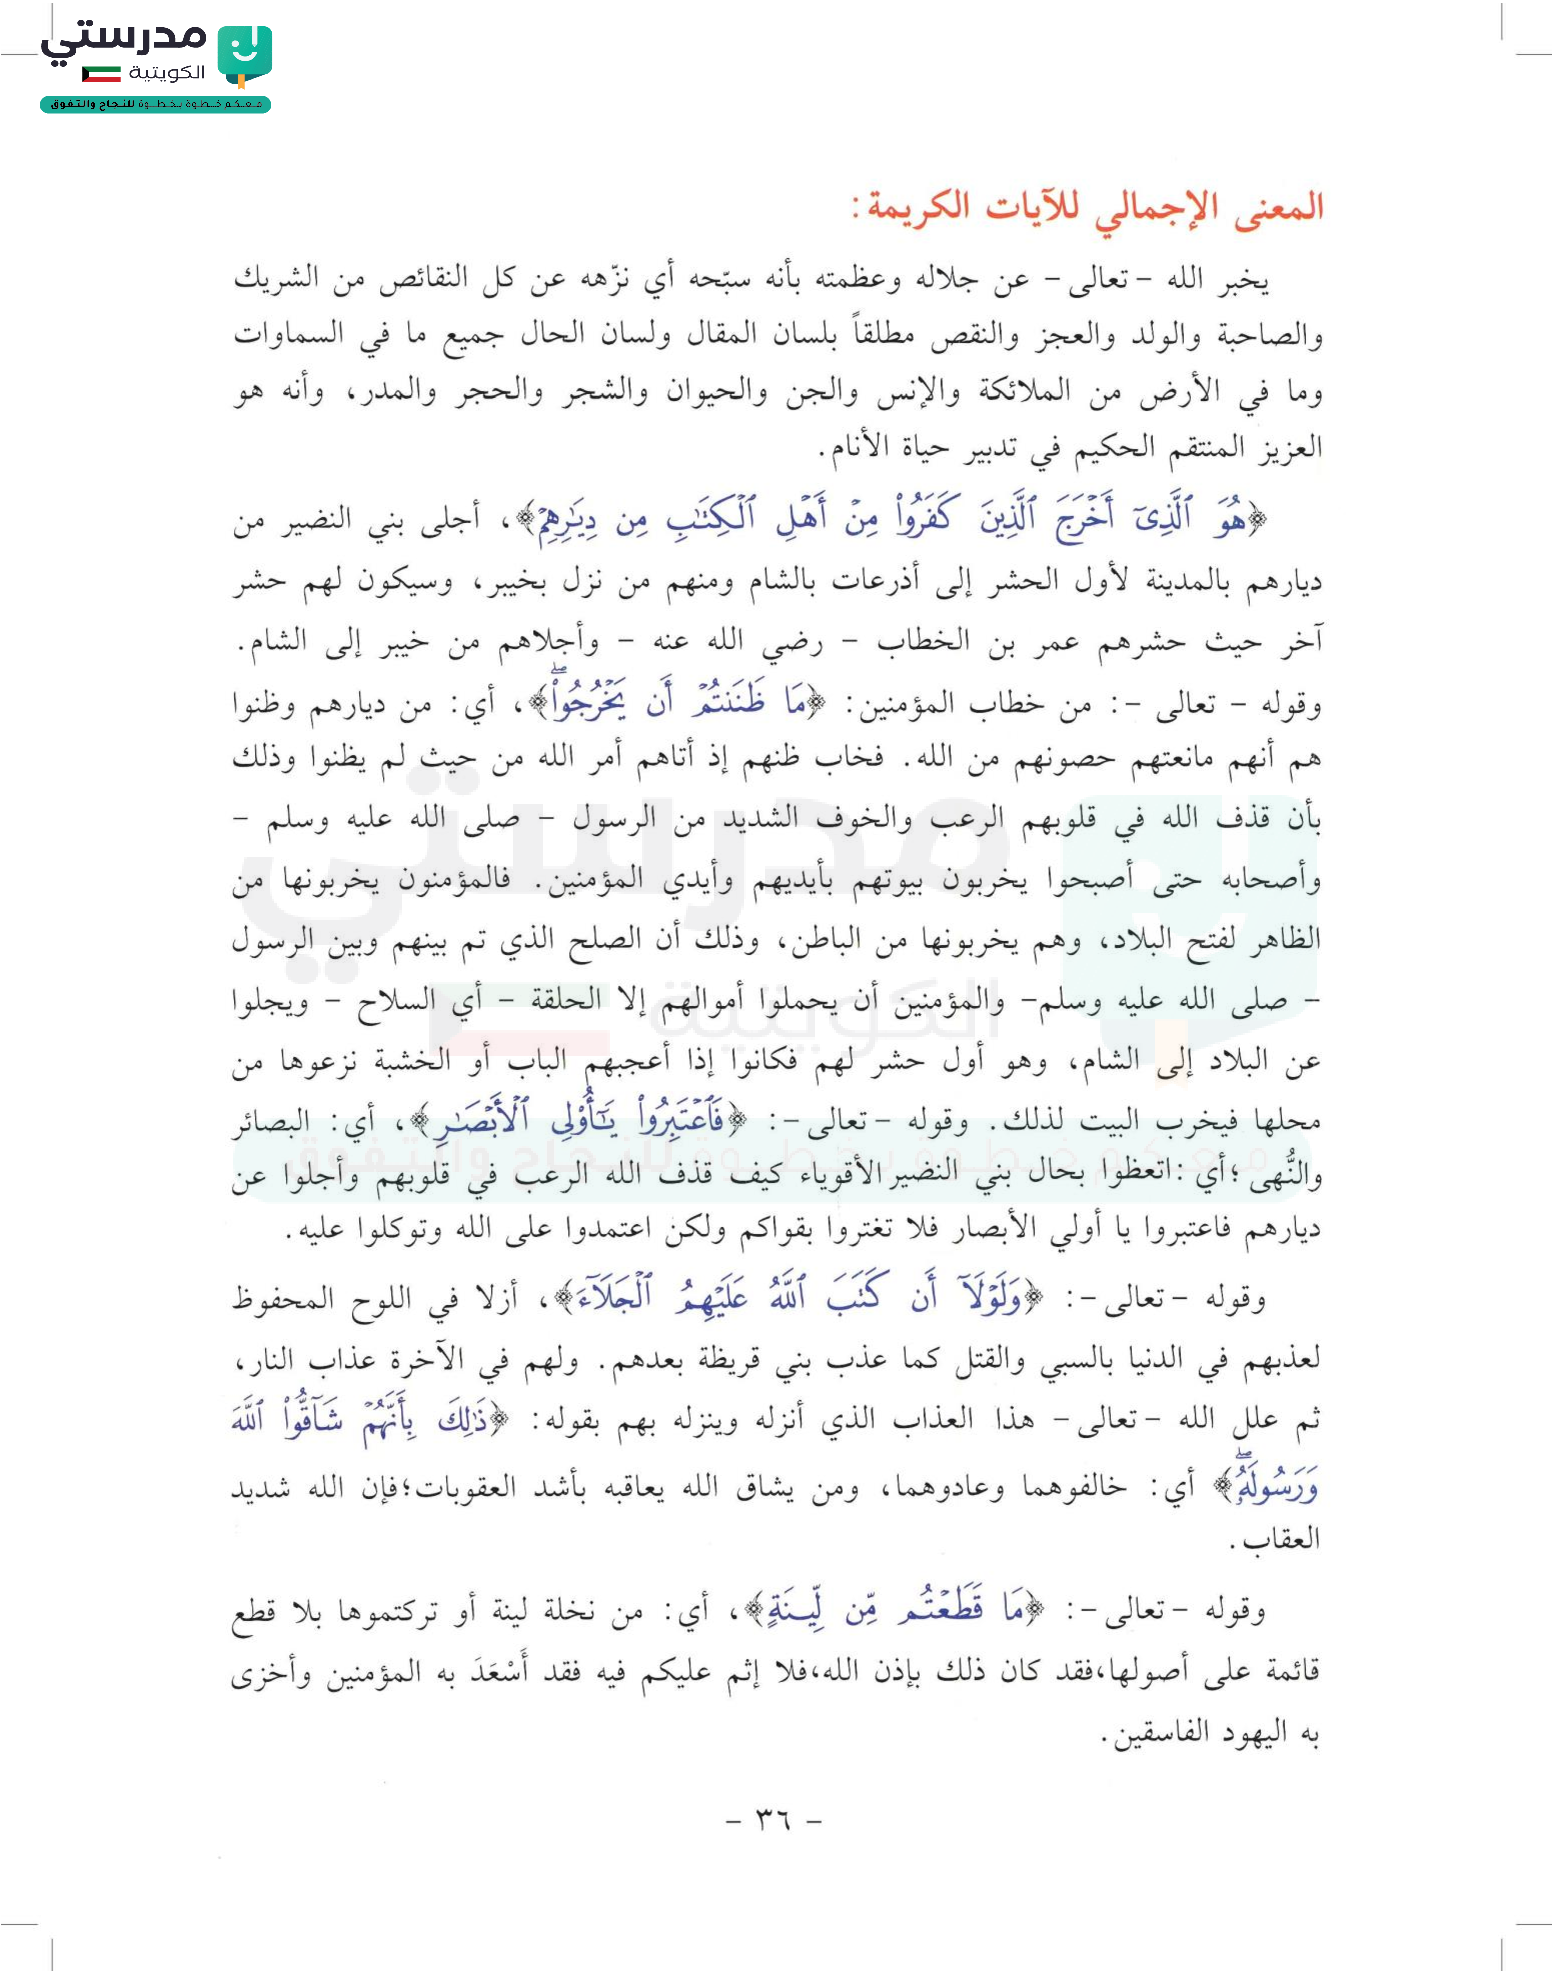 مدرستي
الكويتية
معكم خطوة بخطوة للنجاح والتفوق
المعنى الإجمالي للآيات الكريمة:
يخبر الله - تعالى - عن جلاله وعظمته بأنه سبّحه أي نزّهه عن كل النقائص من الشريك
والصاحبة والولد والعجز والنقص مطلقاً بلسان المقال ولسان الحال جميع ما في السماوات
وما في الأرض من الملائكة والإنس والجن والحيوان والشجر والحجر والمدر، وأنه هو
العزيز المنتقم الحكيم في تدبير حياة الأنام.
﴿هُوَ ٱلَّذِىٓ أَخْرَجَ ٱلَّذِينَ كَفَرُوا۟ مِنْ أَهْلِ ٱلْكِتَٰبِ مِن دِيَٰرِهِمْ﴾، أجلى بني النضير من
ديارهم بالمدينة لأول الحشر إلى أذرعات بالشام ومنهم من نزل بخيبر، وسيكون لهم حشر
آخر حيث حشرهم عمر بن الخطاب - رضي الله عنه - وأجلاهم من خيبر إلى الشام.
وقوله - تعالى -: من خطاب المؤمنين: ﴿مَا ظَنَنتُمْ أَن يَخْرُجُوا۟ۖ﴾، أي: من ديارهم وظنوا
هم أنهم مانعتهم حصونهم من الله. فخاب ظنهم إذ أتاهم أمر الله من حيث لم يظنوا وذلك
بأن قذف الله في قلوبهم الرعب والخوف الشديد من الرسول - صلى الله عليه وسلم -
وأصحابه حتى أصبحوا يخربون بيوتهم بأيديهم وأيدي المؤمنين. فالمؤمنون يخربونها من
الظاهر لفتح البلاد، وهم يخربونها من الباطن، وذلك أن الصلح الذي تم بينهم وبين الرسول
- صلى الله عليه وسلم- والمؤمنين أن يحملوا أموالهم إلا الحلقة - أي السلاح - ويجلوا
عن البلاد إلى الشام، وهو أول حشر لهم فكانوا إذا أعجبهم الباب أو الخشبة نزعوها من
محلها فيخرب البيت لذلك. وقوله - تعالى -: ﴿فَٱعْتَبِرُوا۟ يَٰٓأُو۟لِى ٱلْأَبْصَٰرِ﴾، أي: البصائر
والنُّهى ؛أي :اتعظوا بحال بني النضير الأقوياء كيف قذف الله الرعب في قلوبهم وأجلوا عن
ديارهم فاعتبروا يا أولي الأبصار فلا تغتروا بقواكم ولكن اعتمدوا على الله وتوكلوا عليه.
وقوله - تعالى -: ﴿وَلَوْلَآ أَن كَتَبَ ٱللَّهُ عَلَيْهِمُ ٱلْجَلَآءَ﴾، أزلا في اللوح المحفوظ
لعذبهم في الدنيا بالسبي والقتل كما عذب بني قريظة بعدهم. ولهم في الآخرة عذاب النار،
ثم علل الله - تعالى- هذا العذاب الذي أنزله وينزله بهم بقوله: ﴿ذَٰلِكَ بِأَنَّهُمْ شَآقُّوا۟ ٱللَّهَ
وَرَسُولَهُۥۖ﴾ أي: خالفوهما وعادوهما، ومن يشاق الله يعاقبه بأشد العقوبات؛فإن الله شديد
العقاب.
وقوله - تعالى -: ﴿مَا قَطَعْتُم مِّن لِّينَةٍ﴾، أي: من نخلة لينة أو تركتموها بلا قطع
قائمة على أصولها،فقد كان ذلك بإذن الله،فلا إثم عليكم فيه فقد أَسْعَدَ به المؤمنين وأخزى
به اليهود الفاسقين.
- ٣٦ -